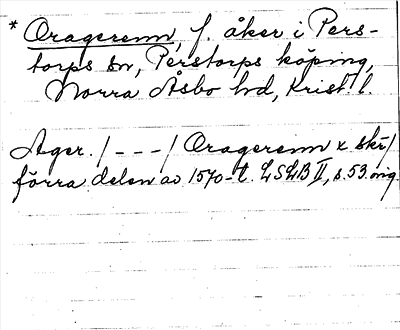 * Oragerenn, f. åker i Pers-
torps sn, Perstorps köping,
Norra Åsbo hd, Krist. l.
Ager. / - - - / Oragerenn x skr /
förra delen av 1570-t. LSLB II, s. 53. orig.